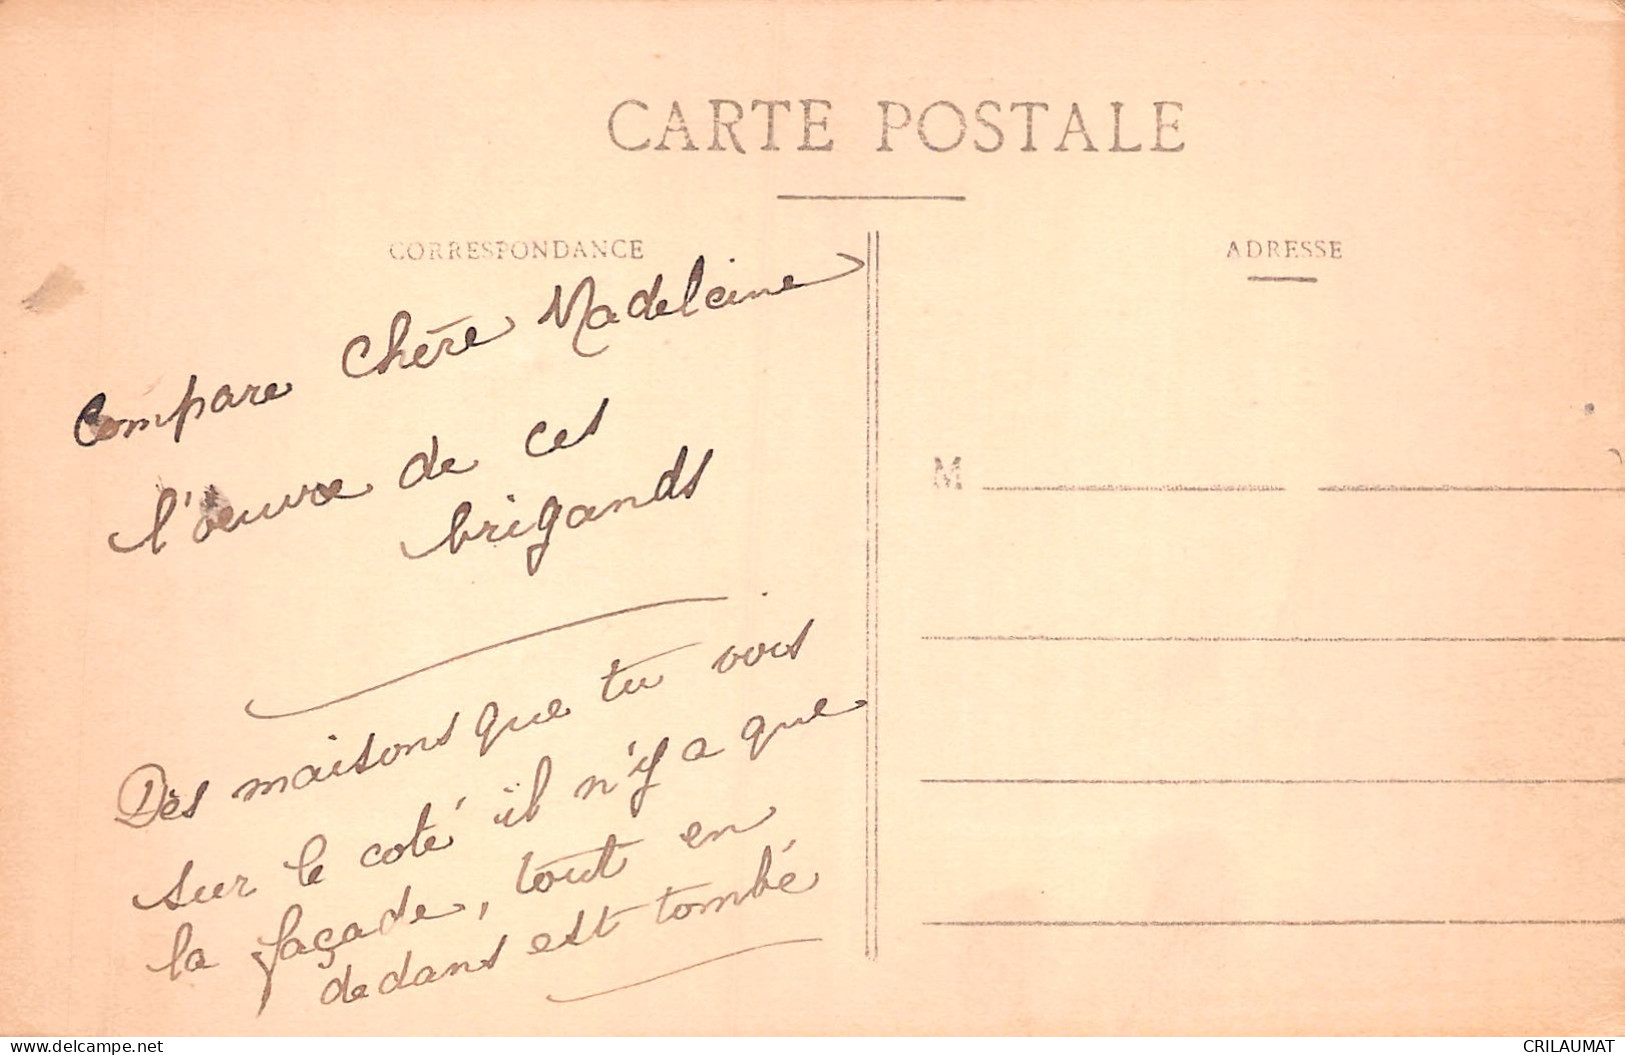 CARTE POSTALE
CORRESPONDANCE
ADRESSE
Compare Chère Madeleine
l'oeuvre de ces
brigands
Dès maisons que tu vois
sur le coté il n'y a que
la façade, tout en
dedans est tombé
M
www.delcampe.net
CRILAUMAT